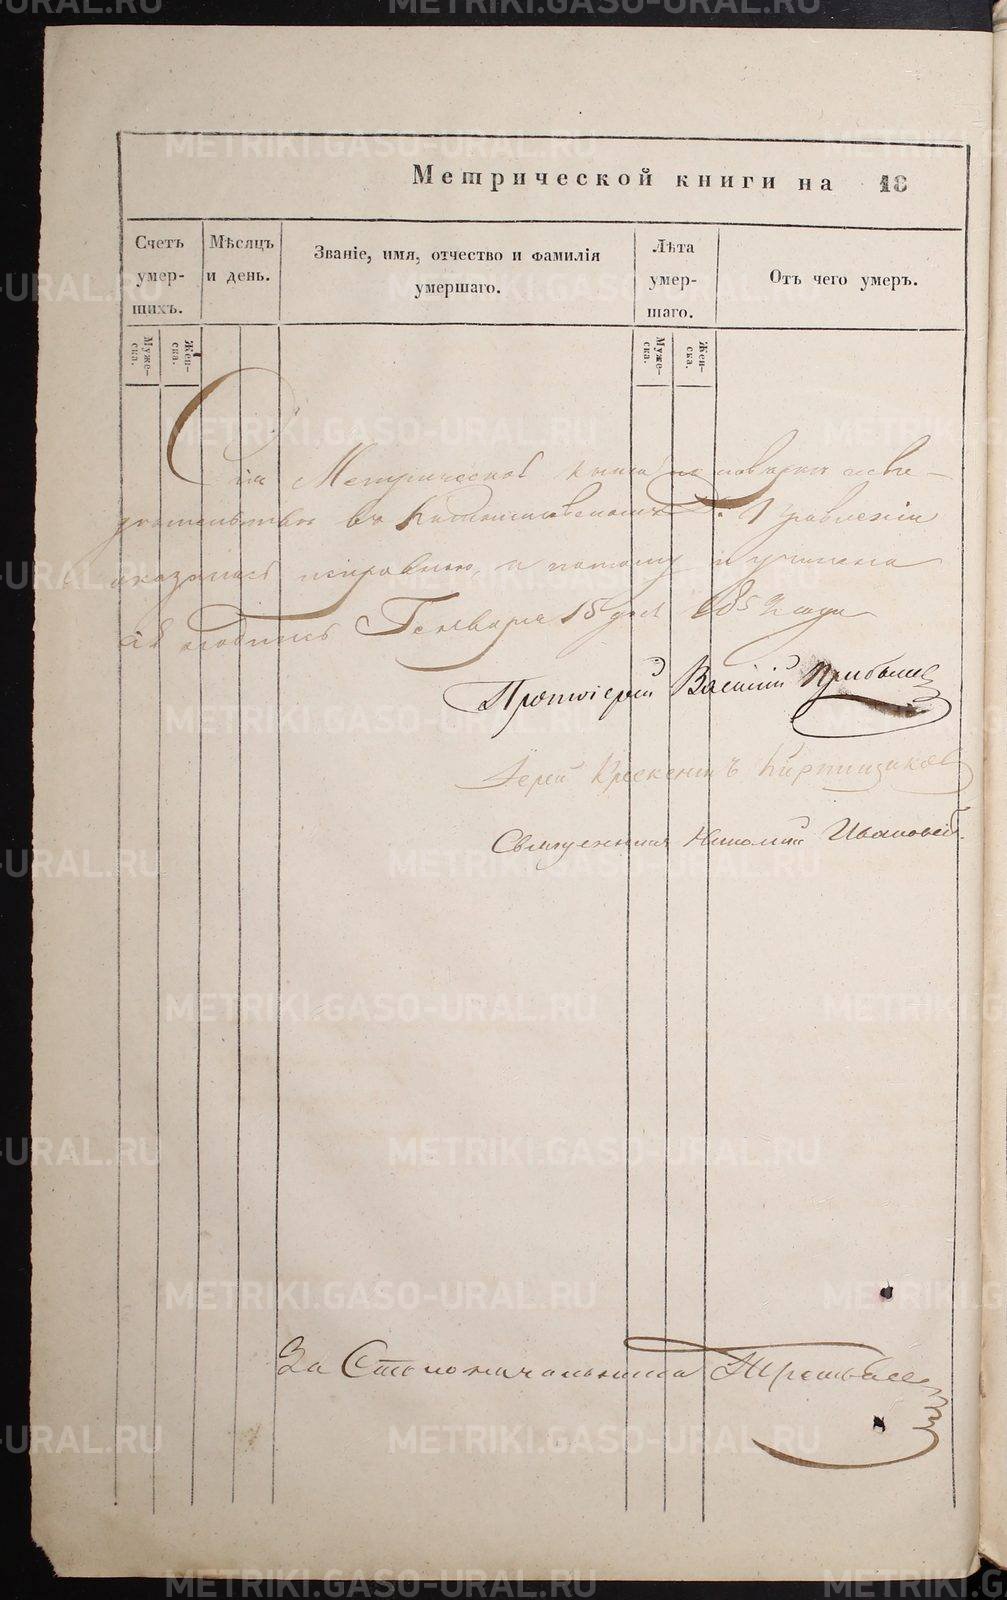 Метрической книги на 18
Счетъ умер-шихъ.
Мѣсяцъ и день.
Званіе, имя, отчество и фамилія умершаго.
Лѣта умер-шаго.
Отъ чего умеръ.
Муже-ска.
Жен-ска.
Муже-ска.
Жен-ска.
Сія Метрическая книга по поверке и сви-
детельстве въ Управленіи
оказалась исправною, а потому и учинена
Генваря 15 дня 185 года
Протоіерей Василій
Іерей Крескентъ Кирпищиковъ
Священникъ Николай Ивановъ
За Столоначальника
METRIKI.GASO-URAL.RU